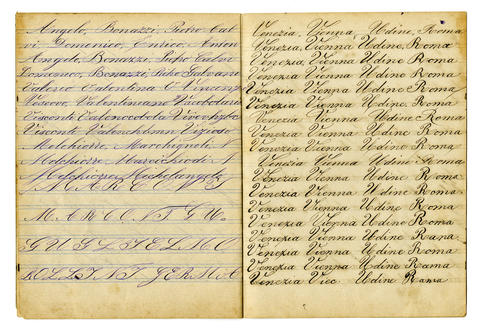 Angelo, Bonazzi, Pietro Cal
vi Domenico, Enrico, Anton
Angelo, Bonazzi, Pietro Calvi
Domenico, Bonazzi, Pietro Galvano
Valerio Valentina C Vincenzo
Vescovo, Valentiniano
Visconti
Visconti Vizioso
Melchiorre, Marchignoli
Melchiorre
Melchiorre Michelangelo
M A R C O N I
M A R C O N I G U.
G U G L I E L M O
Venezia, Vienna, Udine, Roma
Venezia, Vienna Udine, Roma
Venezia, Vienna Udine Roma
Venezia Vienna Udine Roma
Venezia Vienna Udine Roma
Venezia Vienna Udine Roma
Venezia Vienna Udine, Roma
Venezia Vienna Udine Roma
Venezia Vienna Udine Roma
Venezia Vienna Udine Roma
Venezia Vienna Udine Roma
Venezia Vienna Udine Roma
Venezia Vienna Udine Roma
Venezia Vienna Udine Roma
Venezia Vienna Udine Roma
Venezia Vienna Udine Rana
Venezia Vienna Udine Roma
Venezia Vienna Udine Rama
Venezia Viec Udine Rama